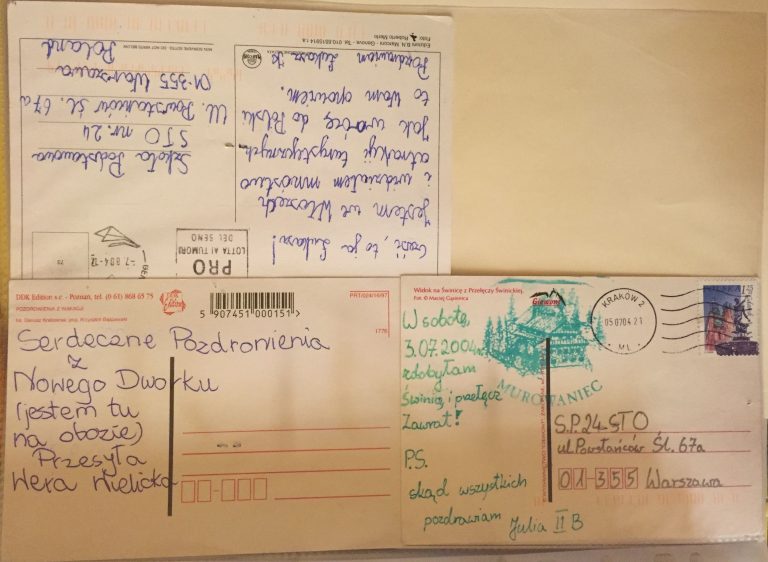 Edizioni B.N. Marconi - Genova - Tel. 010.6515914
Foto Roberto Merlo
Cześć, to ja Łukasz!
Jestem we Włoszech
i widziałem mnóstwo
atrakcji turystycznych
Jak wrócę do Polski
to Wam opowiem.
Pozdrawiam Łukasz
PRO
LOTTA AI TUMORI
DEL SENO
Szkoła Podstawowa
STO nr. 24
Ul. Powstańców Śl. 67a
01-355 Warszawa
Poland
DDK Edition s.c. - Poznań, tel. (0 61) 868 65 75
POZDROWIENIA Z WAKACJI
5 907451 000151 >
PRT/024/16/97
1776
Serdeczne Pozdrowienia
z
Nowego Dworku
(jestem tu
na obozie)
Przesyła
Wera Mielicka
Widok na Świnicę z Przełęczy Świnickiej.
Fot. © Maciej Gąsienica
W sobotę,
3.07.2004r.
zdobyłam
Świnicę i przełęcz
Zawrat!
P.S.
skąd wszystkich
pozdrawiam Julia II B
MUROWANIEC
KRAKÓW 2
05 07 04 21
ML
S.P. 24 STO
ul. Powstańców Śl. 67a
01-355 Warszawa